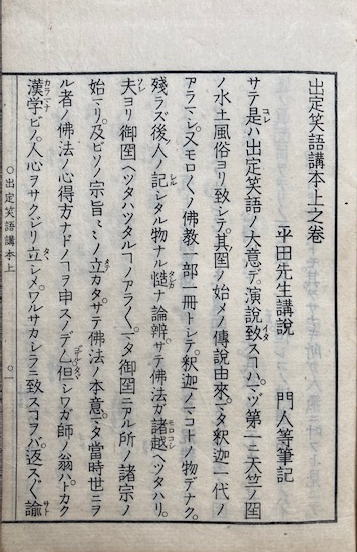 出定笑語講本上之卷
平田先生講説　門人等筆記
サテ是ハ出定笑語ノ大意デ。演説致スヿハ。マヅ第一ニ天竺ノ国
ノ水土風俗ヨリ致シテ。其国ノ始メノ傳説由來。マタ釈迦一代ノ
アラマシ。又モロ〱ノ佛教一部一冊トシテ。釈迦ノマコトノ物デナク。
殘ラズ後人ノ記シタル物ナル慥ナ論辨。サテ佛法ガ諸越ヘツタハリ。
夫ヨリ御国ヘツタハツタルヿノアラ〱。マタ御国ニアル所ノ諸宗ノ
始マリ。及ビソノ宗旨〻〻ノ立カタ。サテ佛法ノ本意。マタ當時世ニヲ
ル者ノ佛法ノ心得方ナドノヿヲ申スノデム。但シワガ師ノ翁ハ。トカク
漢学ビノ。人心ヲサクジリ立シメ。ワルサカシラニ致スヿヲバ。返ス〲諭
○出定笑語講本上
○一